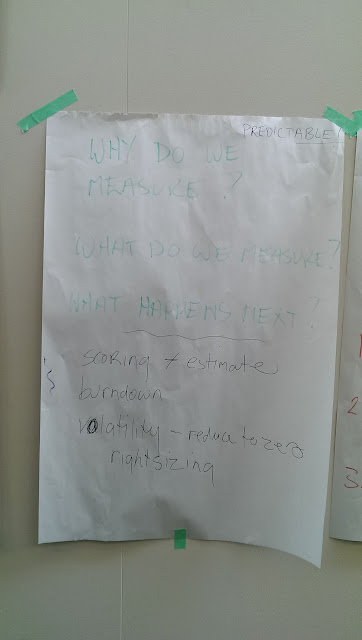 PREDICTABLE
WHY DO WE
MEASURE ?
WHAT DO WE MEASURE?
WHAT HAPPENS NEXT?
scoring + estimate
burndown
volatility - reduce to zero
rightsizing
2
3.